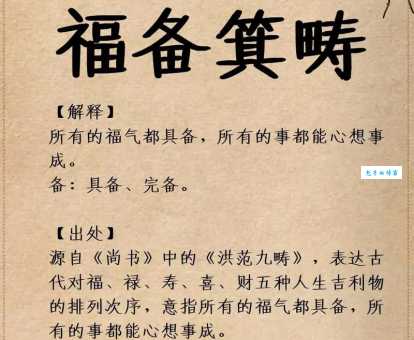 福备箕畴
【解释】
所有的福气都具备，所有的事都能心想事
成。
备：具备、完备。
【出处】
源自《尚书》中的《洪范九畴》，表达古
代对福、禄、寿、喜、财五种人生吉利物
的排列次序，意指所有的福气都具备，所
有的事都能心想事成。